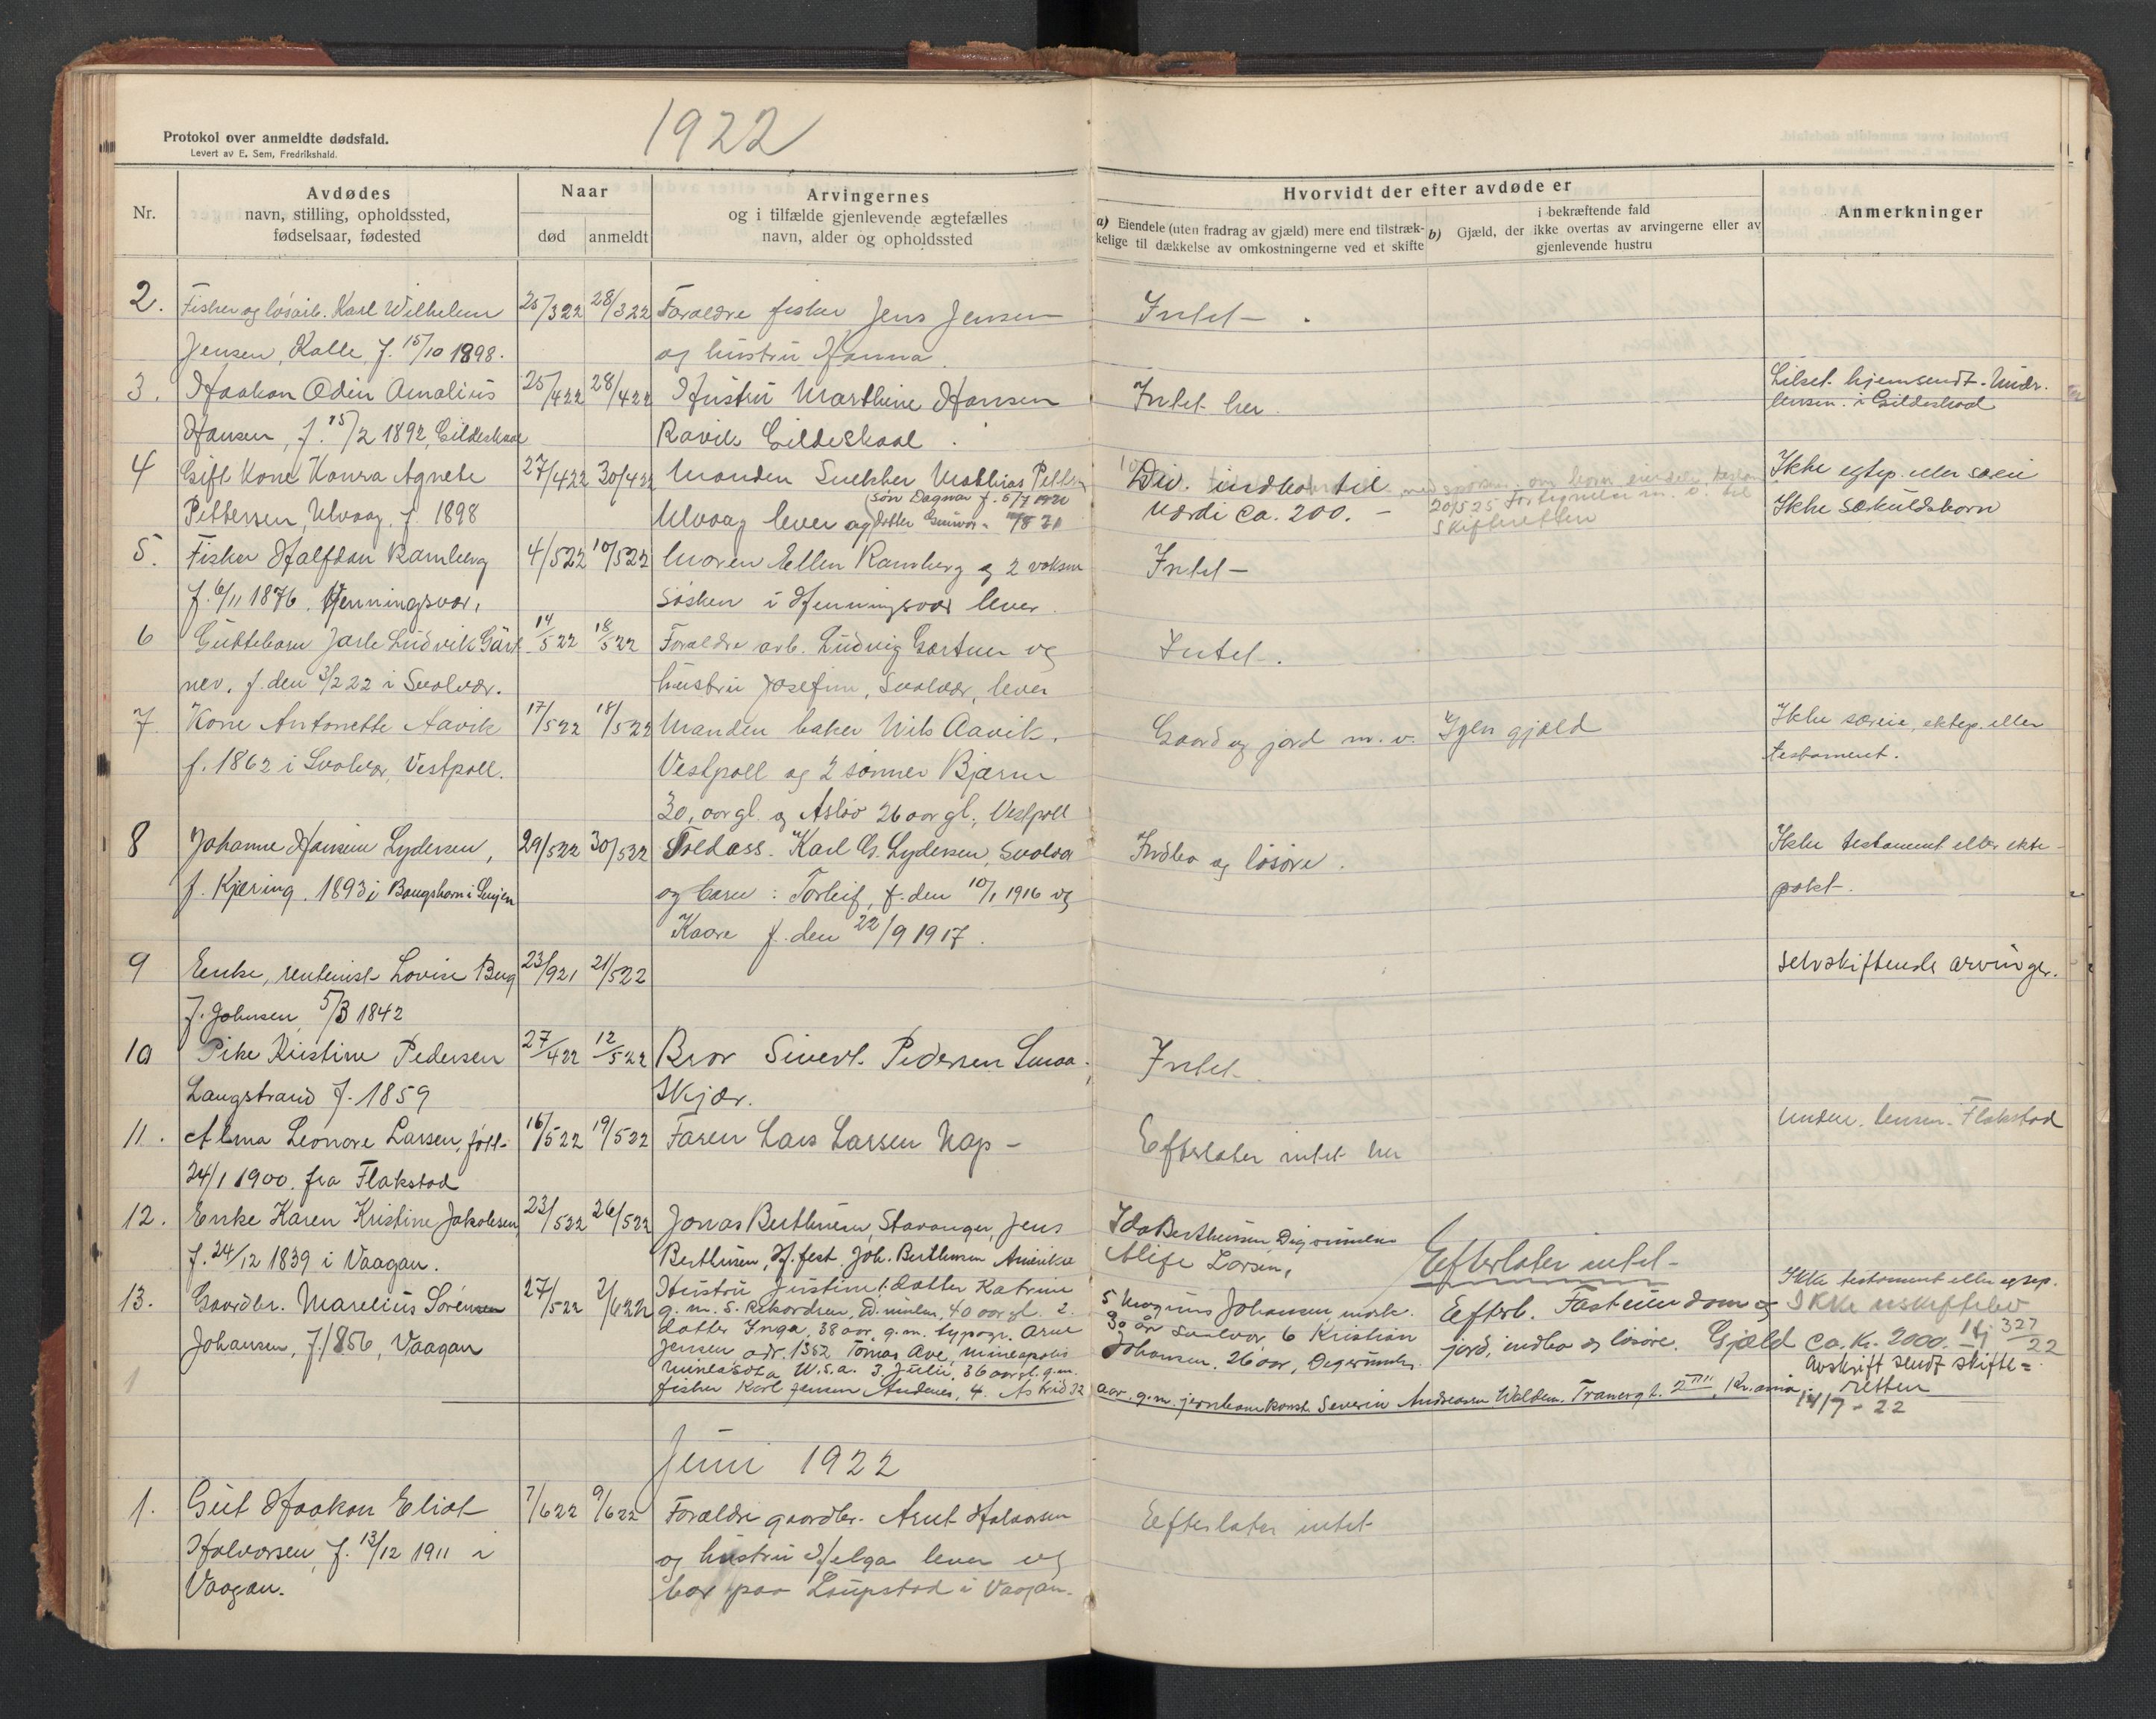 Protokol over anmeldte dødsfald.
Levert av E. Sem, Fredrikshald.
1922
Nr.
Avdødes
navn, stilling, opholdssted,
fødselsaar, fødested
Naar
død
anmeldt
Arvingernes
og i tilfælde gjenlevende ægtefælles
navn, alder og opholdssted
Hvorvidt der efter avdøde er
a) Eiendele (uten fradrag av gjæld) mere end tilstræk-
kelige til dækkelse av omkostningerne ved et skifte
i bekræftende fald
b) Gjæld, der ikke overtas av arvingerne eller av
gjenlevende hustru
Anmerkninger
2. Fisker og løsarb. Karl Wilhelm
Jensen, Kalle f. 15/10 1898.
25/3 22 28/3 22
Forældre fisker Jens Jensen
og hustru Hanna
Intet
3. Haakon Odin Amalius
Hansen, f. 15/2 1892, Gildeskaal
25/4 22 28/4 22
Hustru Marthine Hansen
Ravik Gildeskaal
Intet her
hjemsendt
i Gildeskaal
4 Gift Kone Konra Agnete
Pettersen, Ulvaag, f. 1898
27/4 22 30/4 22
Manden Snekker Mathias Petters
søn Dagmar f. 5/7 1920
Ulvaag lever og datter Gunvor
Div. indbo til
værdi ca. 200. -
20/5 25 fortegnelse m. v. til
Skifteretten
Ikke egtep. eller særeie
Ikke særkuldsbarn
5. Fisker Halfdan Ramberg
f. 6/11 1876, Henningsvær,
4/5 22 10/5 22
Maren Ellen Ramberg og 2 voksne
søsken i Henningsvær lever
Intet -
6 Guttebarn Jarle Ludvik Gärt
ner, f. den 3/2 22 i Svolvær.
14/5 22 18/5 22
Forældre arb. Ludvig Gartner og
hustru Josefine, Svolvær, lever
Intet.
7. Kone Antonette Aavik
f. 1862 i Svolvær, Vestpoll.
17/5 22 18/5 22
Manden baker Nils Aavik.
Vestpoll og 2 sønner Bjarne
30, aar gl. og Aslov 26 aar gl., Vestpoll
Gaard og jord m. v.
Igen gjæld
Ikke særeie, ektep. eller
testament.
8 Johanne Hansine Lydersen,
f. Kjæring. 1893 i Baugshorn i Senjen
29/5 22 30/5 22
Toldass. Karl G. Lydersen, Svolvær
og barn: Torleif, f. den 10/1 1916 og
Kaare f. den 22/9 1917.
Indbo og løsøre.
Ikke testament eller ekte-
pakt.
9 Enke, rentenist Lovise Berg
f. Johnsen, 5/3 1842
23/9 21 21/5 22
selvskiftende arvinger.
10 Pike Kristine Pedersen
Langstrand f. 1859
27/4 22 12/5 22
Bror Sivert Pedersen Smaa-
Skjær.
Intet
11. Alma Leonore Larsen, født
24/1 1900. fra Flakstad
16/5 22 19/5 22
Faren Lars Larsen Nap -
Efterlater intet her
Flakstad
12. Enke Karen Kristine Jakobsen,
f. 24/12 1839 i Vaagan.
23/5 22 26/5 22
Jonas Berthusen, Stavanger, Jens
Berthusen, H. fest. Joh. Berthusen Amerika
Ida Berthusen Digermulen
Alife Larsen,
Efterlater intet
13. Gaardbr. Marelius Sørensen
Johansen, f. 1856, Vaagan
27/5 22 2/6 22
Hustru Justine 1. datter Katrine
g. m. S. Rikardsen, D.mulen, 40 aar gl. 2.
datter Inga, 38 aar, g.m. typogr. Arne
Jensen adr. 1352 Tomas Ave, mineapolis
minesota W.S.a. 3 Julie, 36 aar gl. g.m.
fisker Karl Jensen Andenes, 4. Astrid 32
5 Magnus Johansen, mask.
30 år Svolvær 6 Kristian
Johansen, 26 aar, Degermulen.
aar. g.m. jernbanekonst. Severin Andreassen Waldem. Tranersgt. 2 III, Kr.ania
Efterl. Fasteiendom og
jord, indbo og løsøre. Gjæld ca. K. 2000. -
Ikke testament eller egtep.
Ikke uskiftebo
327/22
Avskrift sendt skifte=
retten
14/7 - 22
Juni 1922
1. Gut Haakon Eliot
Halvorsen, f. 13/12 1911 i
Vaagan.
7/6 22 9/6 22
Forældre gaardbr. Arnt Halvorsen
og hustru Helga lever og
bor paa Laupstad i Vaagan.
Efterlater intet